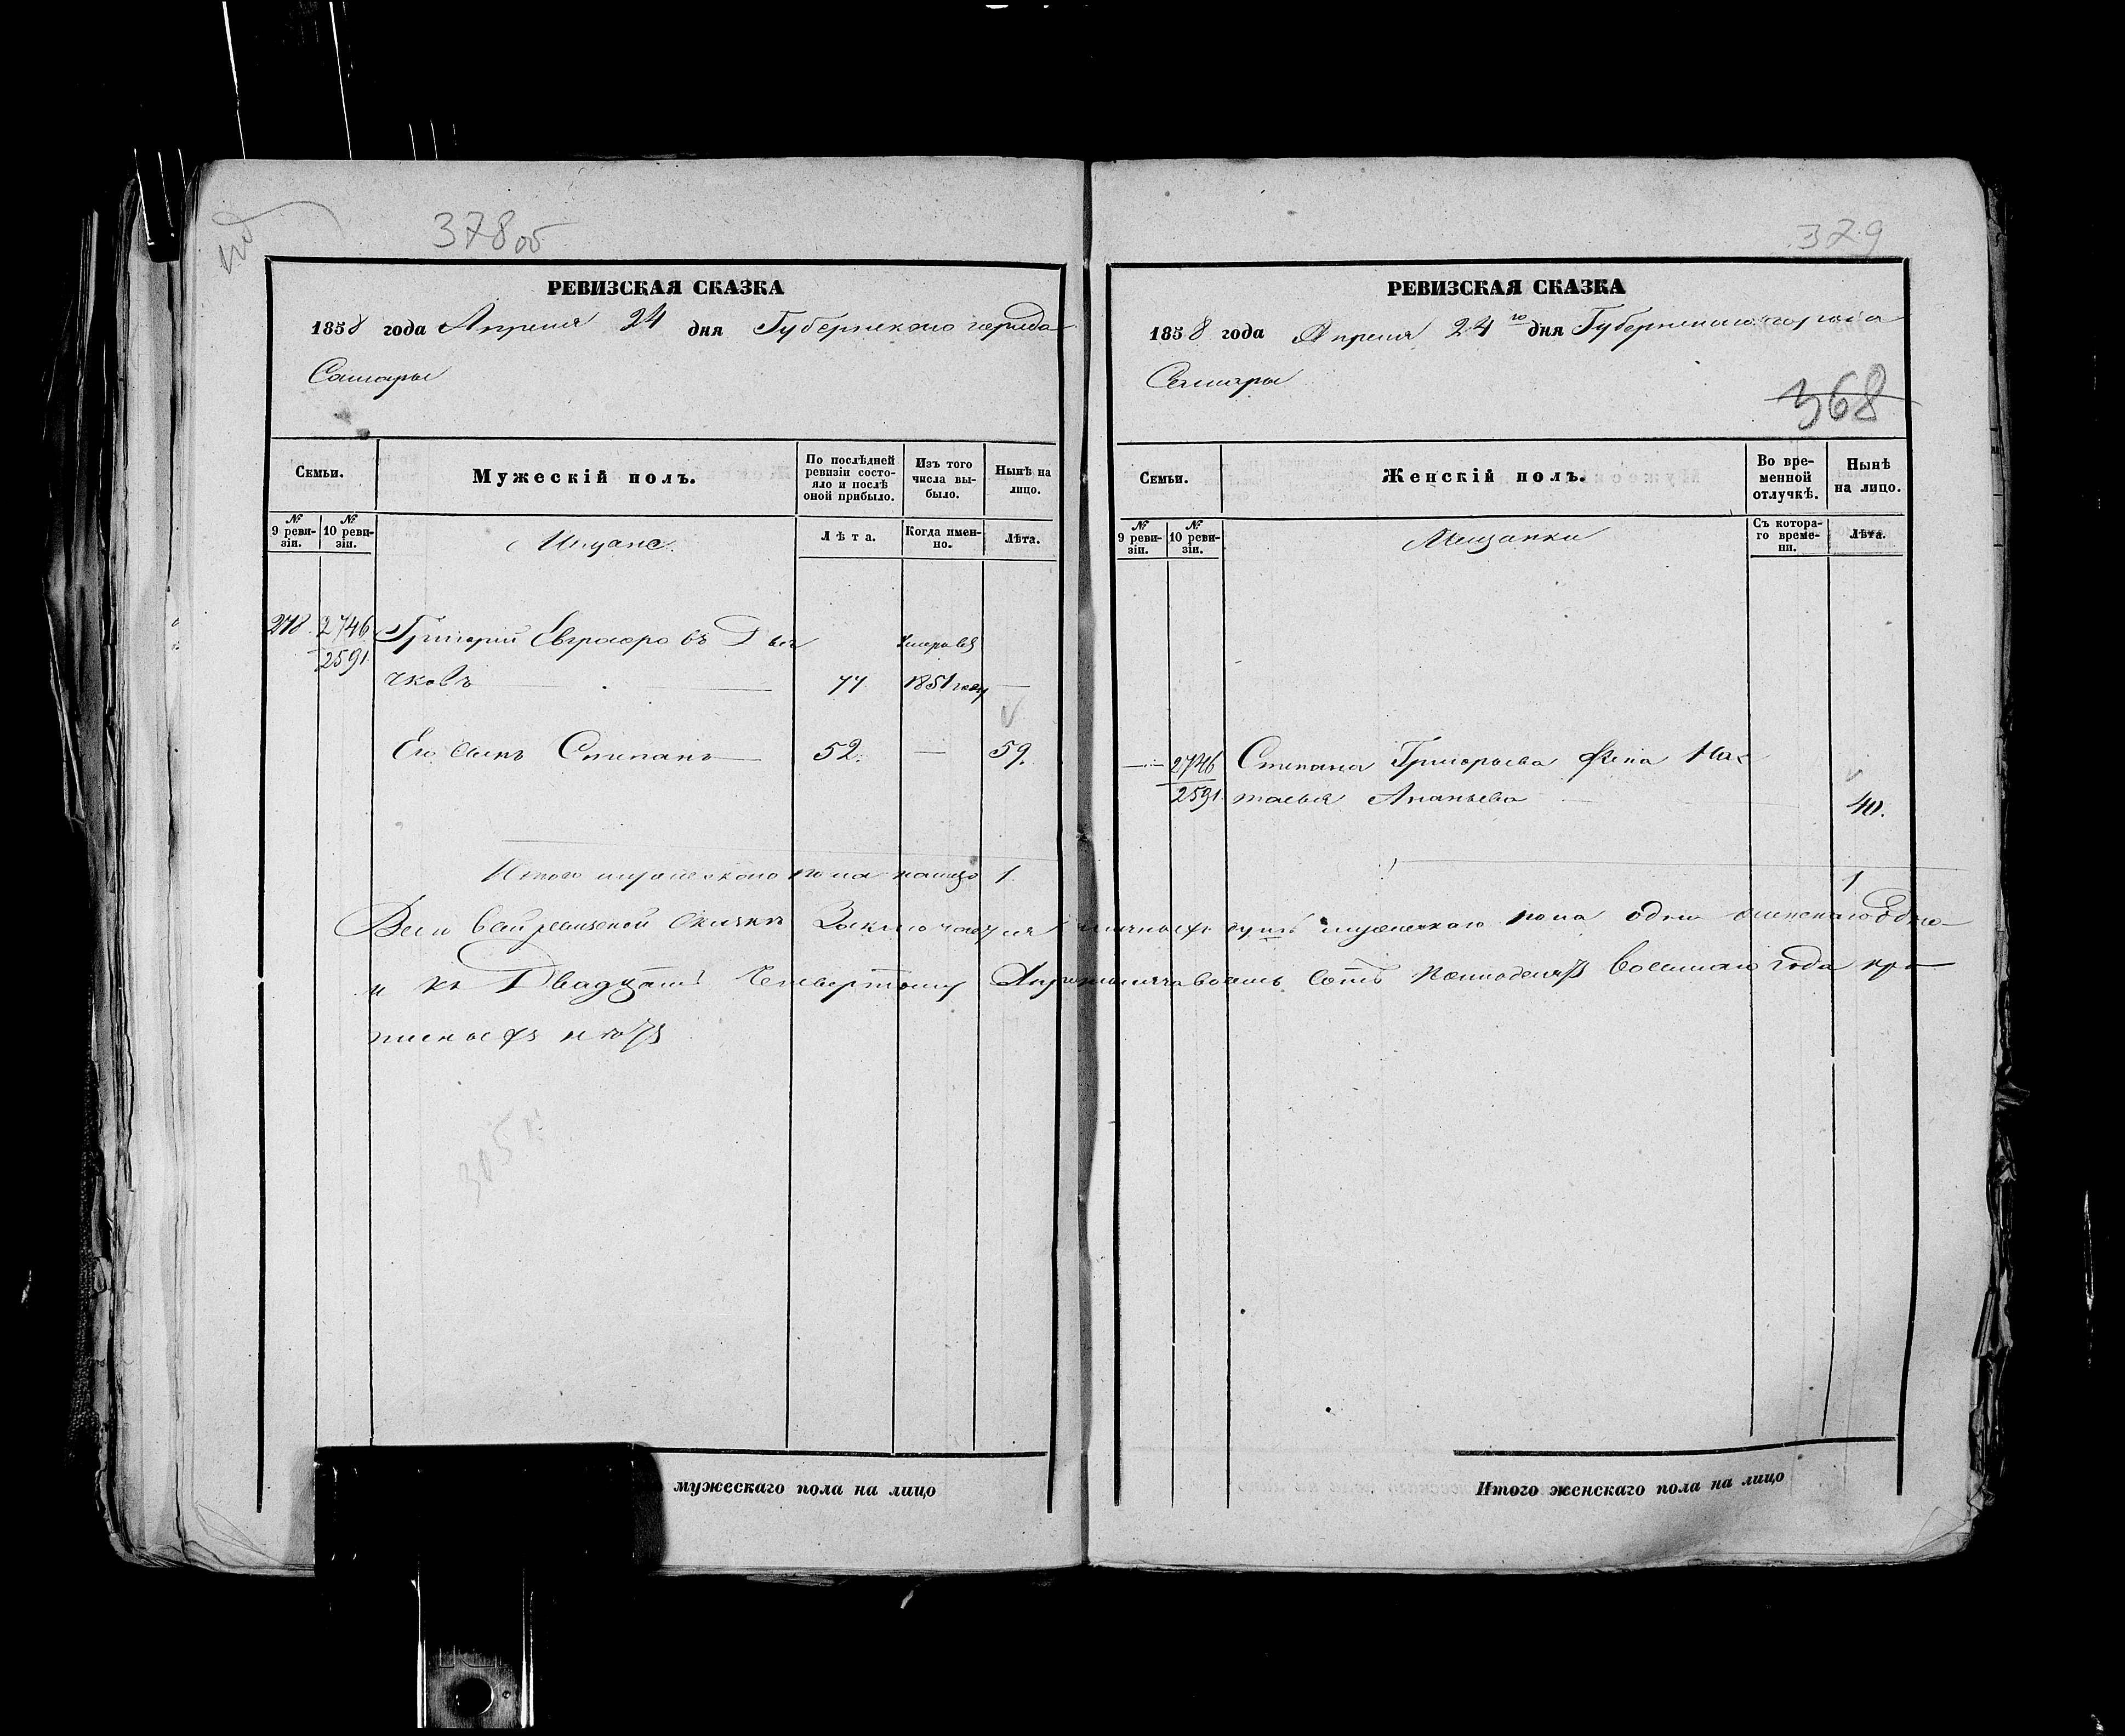 378 об
РЕВИЗСКАЯ СКАЗКА
1858 года Апреля 24 дня Губернскаго города
Самары
Семьи.
Мужескій полъ.
По послѣдней ревизіи состояло и послѣ оной прибыло.
Изъ того числа выбыло.
Нынѣ на лицо.
№ 9 ревизіи.
№ 10 ревизіи.
Мещане
Лѣта.
Когда именно.
Лѣта.
2746 Григорий
2591
чковъ 77 1851 году
Его сынъ Степанъ 52. 59.
Итого мужескаго пола налицо 1
мужескаго пола на лицо
379
РЕВИЗСКАЯ СКАЗКА
1858 года Апреля 24 го дня Губернскаго города
Самары
368
Семьи.
Женскій полъ.
Во временной отлучкѣ.
Нынѣ на лицо.
№ 9 ревизіи.
№ 10 ревизіи.
Мещанки
Съ котораго времени.
Лѣта.
2746 Степана Григорьева жена Нас
2591 тасья Ананьева 40.
1
Всего в сей ревизской сказке заключается наличныхъ душъ мужескаго пола одна женскаго одна
и къ Двадцать Четвертому восемь сотъ пятьдесятъ восьмаго года про
писныхъ нетъ
Итого женскаго пола на лицо